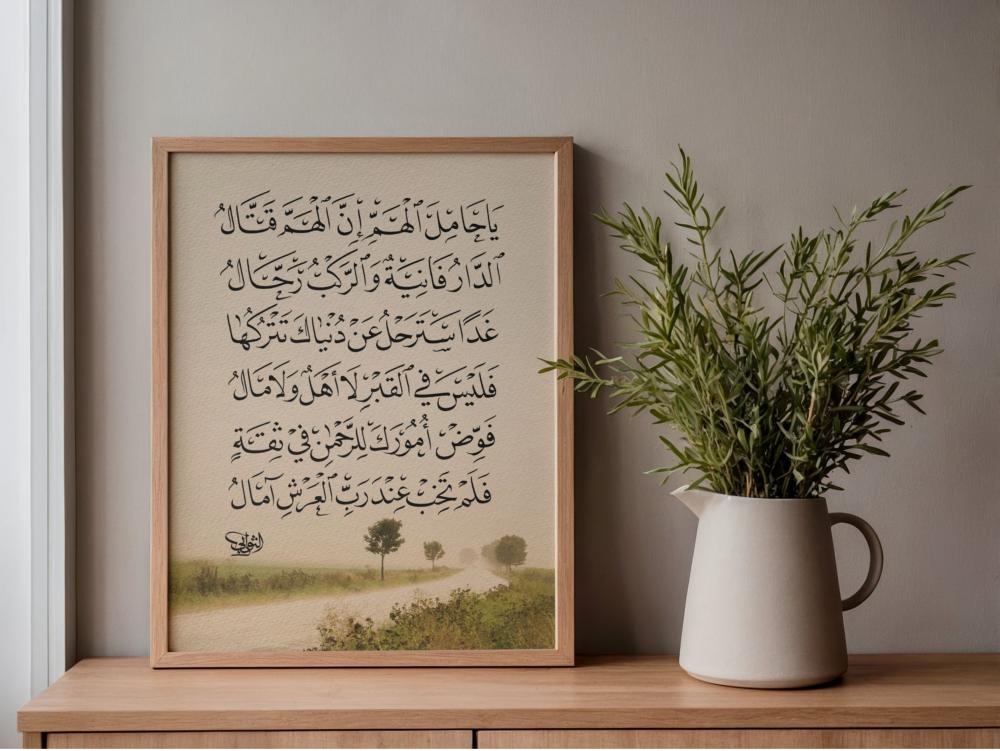 يَا حَامِلَ ٱلْهَمِّ إِنَّ ٱلْهَمَّ قَتَّالُ
ٱلدَّارُ فَانِيَةٌ وَٱلرَّكْبُ رَحَّالُ
غَدًا سَتَرحَلُ عَنْ دُنْيَاكَ تَتْرُكُهَا
فَلَيْسَ فِي ٱلْقَبْرِ لَا أَهْلٌ وَلَا مَالُ
فَوِّضْ أُمُورَكَ لِلرَّحْمٰنِ فِي ثِقَةٍ
فَلَمْ تَخِبْ عِنْدَ رَبِّ ٱلْعَرْشِ آمَالُ